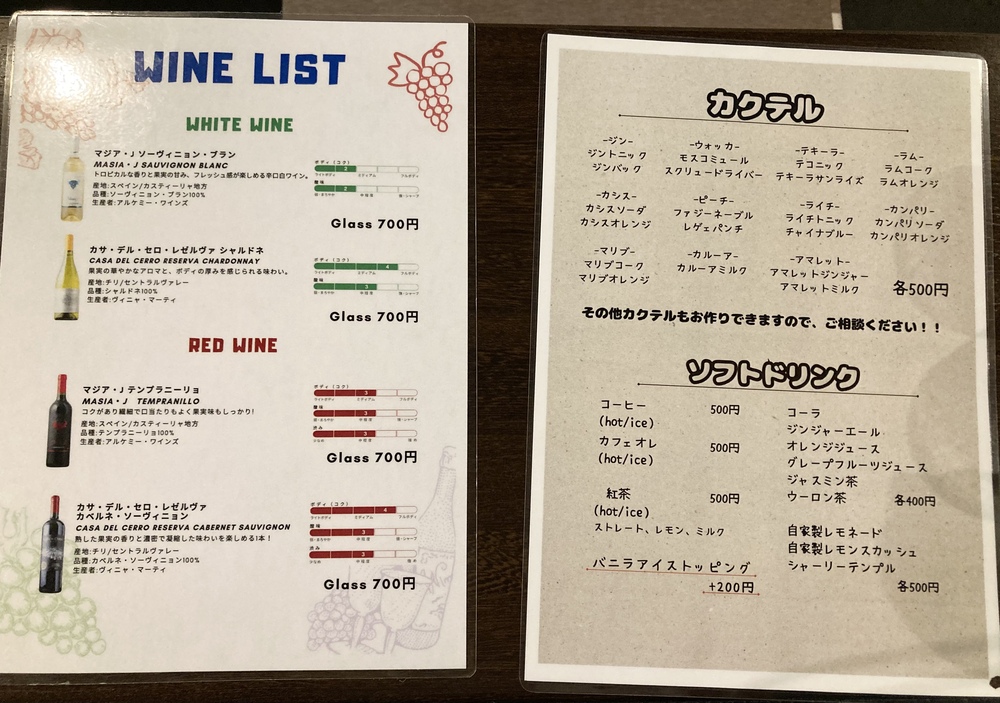 WINE LIST
WHITE WINE
マジア・J ソーヴィニョン・ブラン
MASIA・J SAUVIGNON BLANC
トロピカルな香りと果実の甘み、フレッシュ感が楽しめる辛口白ワイン。
産地:スペイン/カスティーリャ地方
品種:ソーヴィニョン・ブラン100%
生産者:アルケミー・ワインズ
ボディ（コク）
2
ライトボディ ミディアム フルボディ
酸味
2
Glass 700円
カサ・デル・セロ・レゼルヴァ シャルドネ
CASA DEL CERRO RESERVA CHARDONNAY
果実の華やかなアロマと、ボディの厚みを感じられる味わい。
産地:チリ/セントラルヴァレー
品種:シャルドネ100%
生産者:ヴィニャ・マーティ
ボディ（コク）
4
ライトボディ ミディアム フルボディ
酸味
3
Glass 700円
RED WINE
マジア・J テンプラニーリョ
MASIA・J TEMPRANILLO
コクがあり繊細で口当たりもよく果実味もしっかり!
産地:スペイン/カスティーリャ地方
品種:テンプラニーリョ100%
生産者:アルケミー・ワインズ
ボディ（コク）
3
ライトボディ ミディアム フルボディ
酸味
3
渋み
3
Glass 700円
カサ・デル・セロ・レゼルヴァ
カベルネ・ソーヴィニョン
CASA DEL CERRO RESERVA CABERNET SAUVIGNON
熟した果実の香りと濃密で凝縮した味わいを楽しめる1本!
産地:チリ/セントラルヴァレー
品種:カベルネ・ソーヴィニョン100%
生産者:ヴィニャ・マーティ
ボディ（コク）
4
ライトボディ ミディアム フルボディ
酸味
3
渋み
3
Glass 700円
カクテル
-ジン-
ジントニック
ジンバック
-ウォッカー-
モスコミュール
スクリュードライバー
-テキーラ-
テコニック
テキーラサンライズ
-ラム-
ラムコーク
ラムオレンジ
-カシス-
カシスソーダ
カシスオレンジ
-ピーチ-
ファジーネーブル
レゲェパンチ
-ライチ-
ライチトニック
チャイナブルー
-カンパリ-
カンパリソーダ
カンパリオレンジ
-マリブ-
マリブコーク
マリブオレンジ
-カルーア-
カルーアミルク
-アマレット-
アマレットジンジャー
アマレットミルク
各500円
その他カクテルもお作りできますので、ご相談ください！！
ソフトドリンク
コーヒー 500円
(hot/ice)
カフェオレ 500円
(hot/ice)
紅茶 500円
(hot/ice)
ストレート、レモン、ミルク
バニラアイストッピング
+200円
コーラ
ジンジャーエール
オレンジジュース
グレープフルーツジュース
ジャスミン茶
ウーロン茶 各400円
自家製レモネード
自家製レモンスカッシュ
シャーリーテンプル
各500円